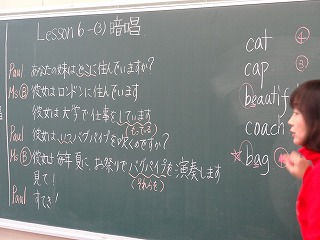 Lesson 6-(3) 暗唱
Paul あなたの妹はどこに住んでいますか?
Ms.B 彼女はロンドンに住んでいます
彼女は大学で仕事をしています
もっている
Paul 彼女はいつバグパイプを吹くのですか?
Ms.B 彼女は毎年夏に、お祭りでバグパイプを演奏します
それらを
見て!
Paul すてき!
cat ④
cap ③
beautif
coach
☆bag